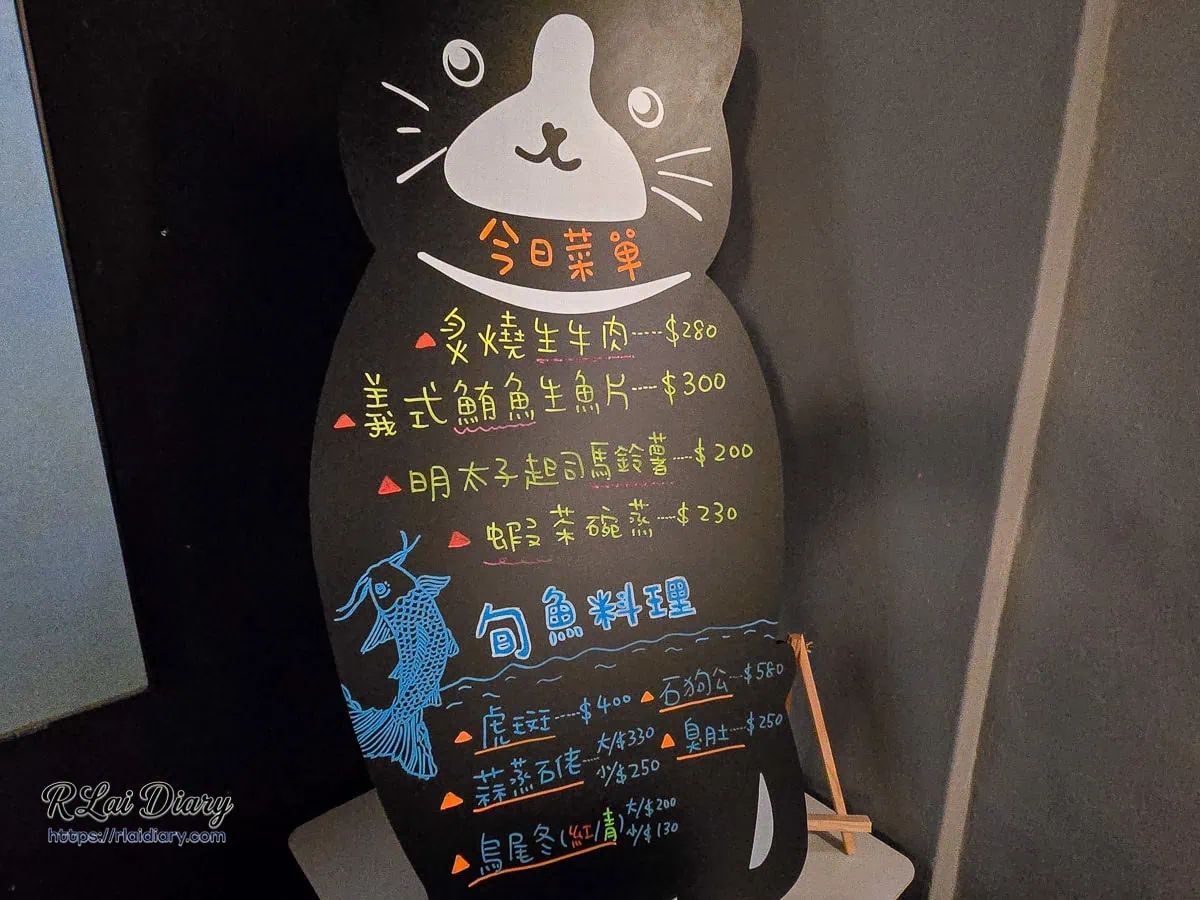 今日菜單
炙燒生牛肉----$280
義式鮪魚生魚片----$300
明太子起司馬鈴薯---$200
蝦茶碗蒸---$230
旬魚料理
虎斑----$400
石狗公--$580
蒜蒸石佬--大/$330 小/$250
臭肚----$250
烏尾冬(紅/青)大/$200 小/$130
RLai Diary
https://rlaidiary.com